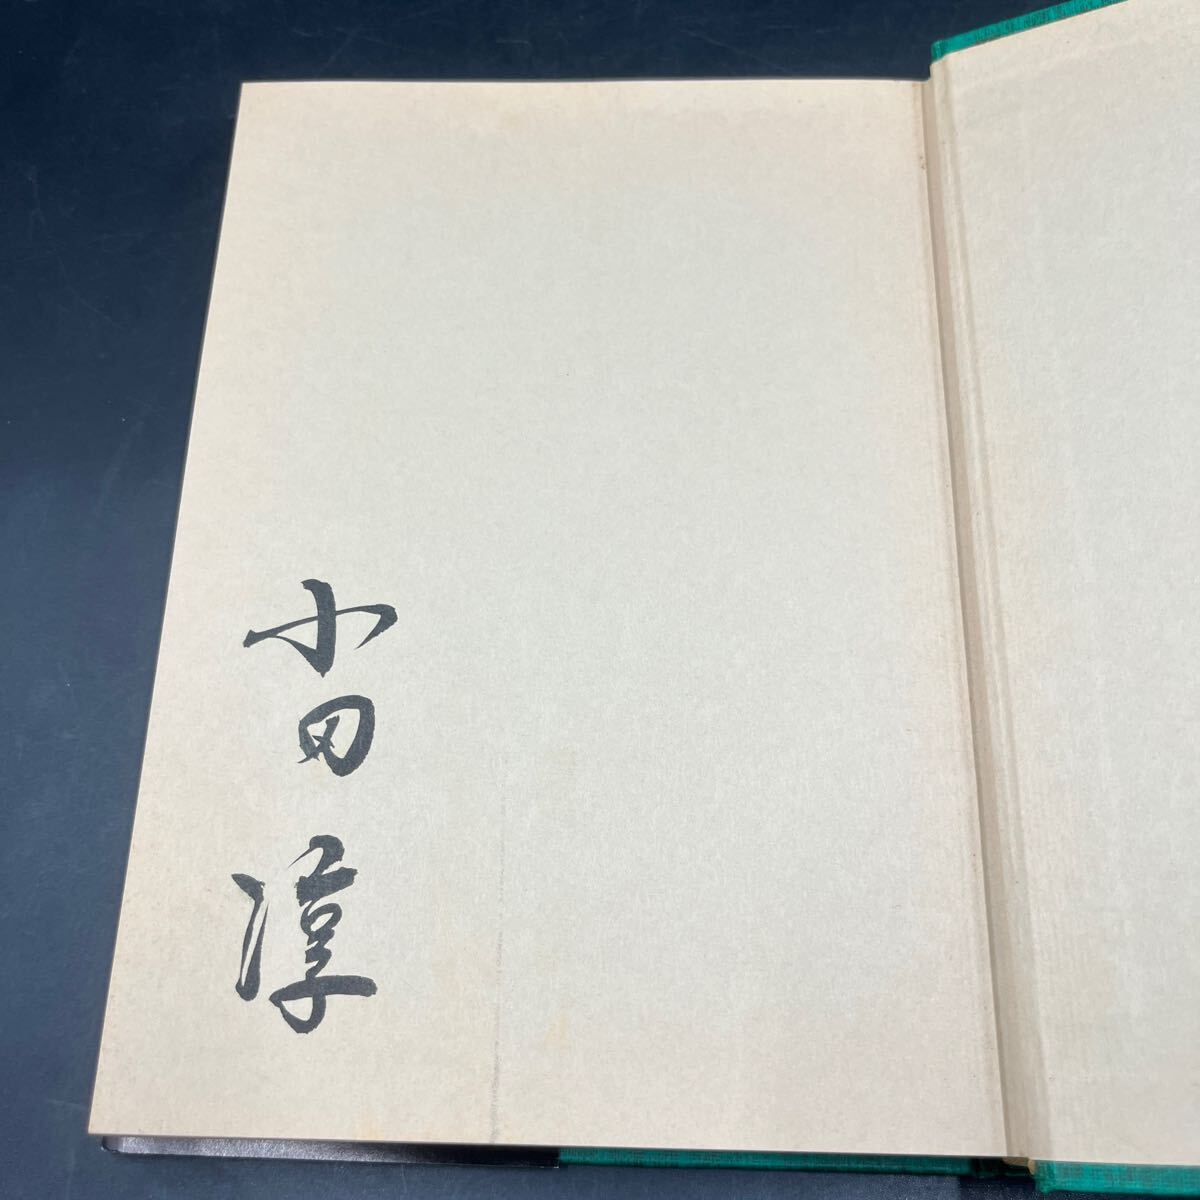 小田淳